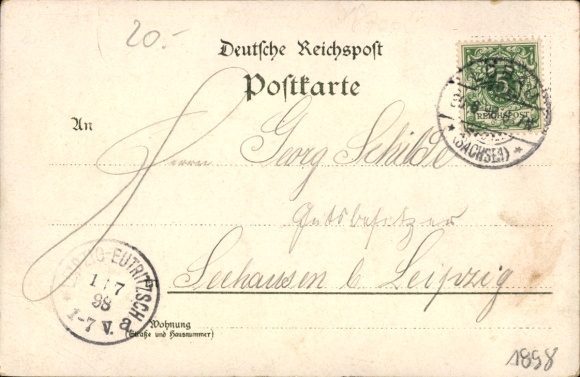 20.-
Deutsche Reichspost
Postkarte
5
REICHSPOST
(SACHSEN)
An
Herrn Georg Schilde
Gutsbesitzer
Seehausen b Leipzig
LEIPZIG-EUTRITZSCH
1/7
98
1-7 V. a
Wohnung
(Straße und Hausnummer)
1898